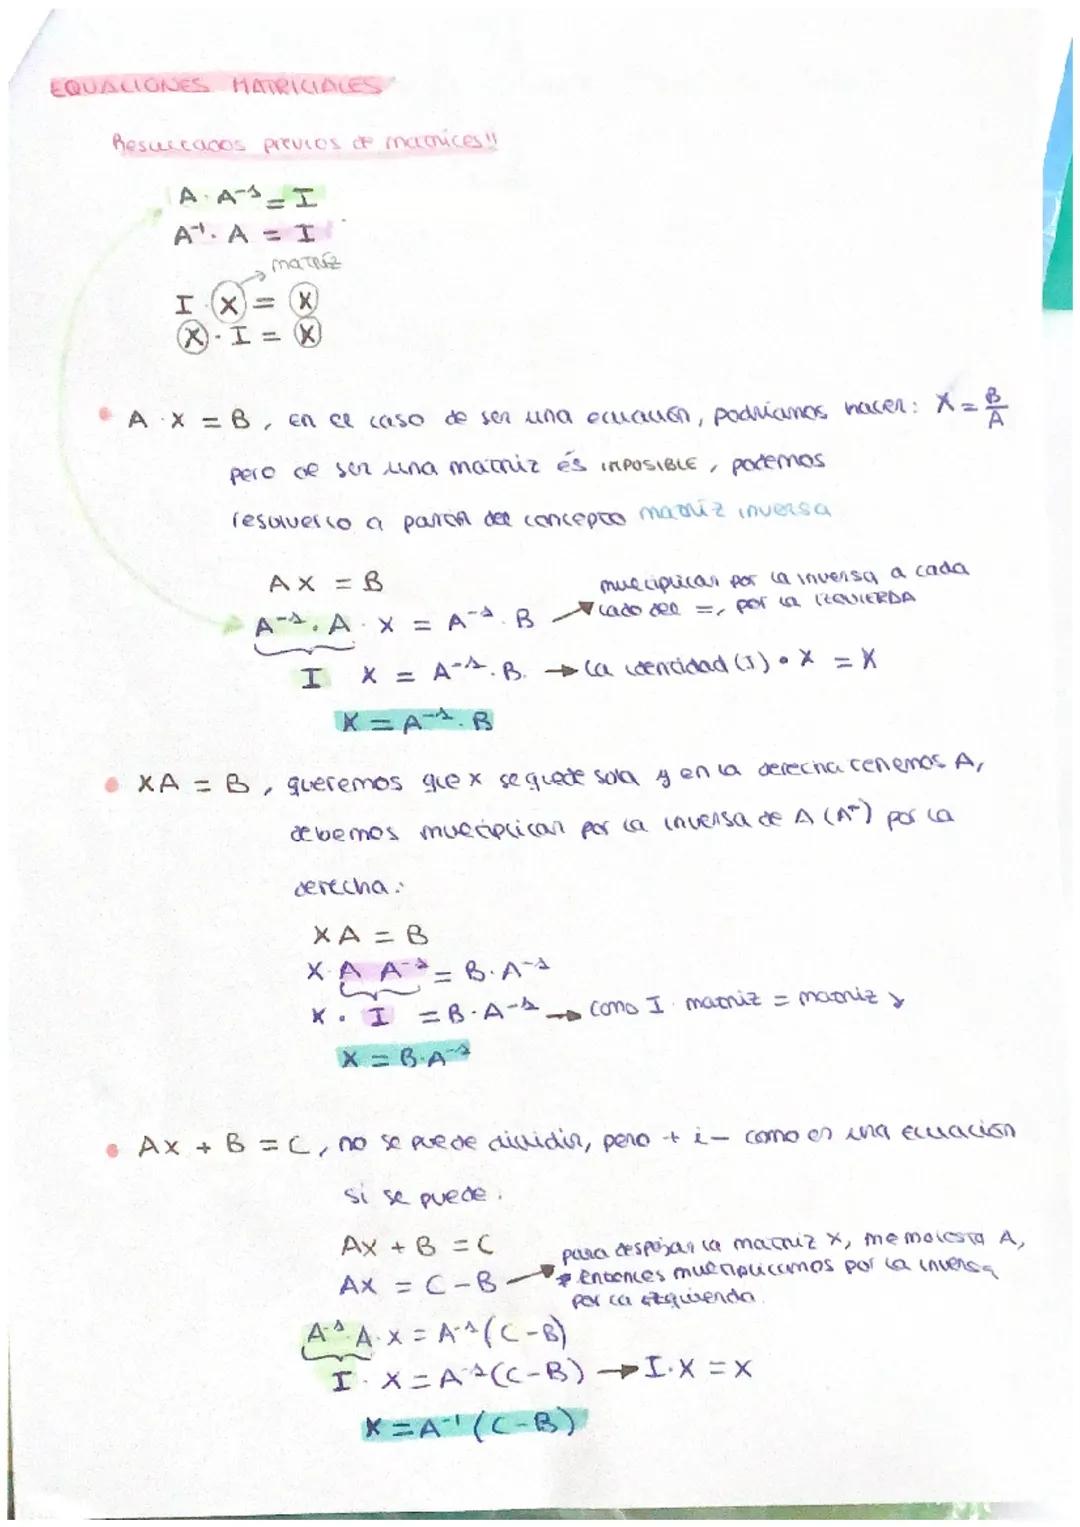 EQUACIONES MATRICIALES
Resultados previos de matrices!!
A · A⁻¹ = I
A⁻¹ · A = I
→ matriz
I · X = X
X · I = X
• A · X = B, en el caso de ser una ecuación, podríamos hacer: X = B/A
pero de ser una matriz és IMPOSIBLE, podemos
resolverlo a partir del concepto matriz inversa
AX = B
multiplicar por la inversa a cada
A⁻¹ · A · X = A⁻¹ · B → lado del =, por la IZQUIERDA
I X = A⁻¹ · B. → la identidad (I) • X = X
X = A⁻¹ · B
• XA = B, queremos que x se quede sola y en la derecha tenemos A,
debemos multiplicar por la inversa de A (A⁻) por la
derecha:
XA = B
X · A A⁻¹ = B · A⁻¹
X · I = B · A⁻¹ → como I · matriz = matriz
X = B · A⁻¹
• AX + B = C, no se puede dividir, pero + i - como en una ecuación
si se puede.
AX + B = C
para despejar la matriz X, me molesta A,
AX = C - B → entonces multiplicamos por la inversa
por la izquierda.
A⁻¹ · A · X = A⁻¹ (C - B)
I · X = A⁻¹ (C - B) → I · X = X
X = A⁻¹ (C - B)